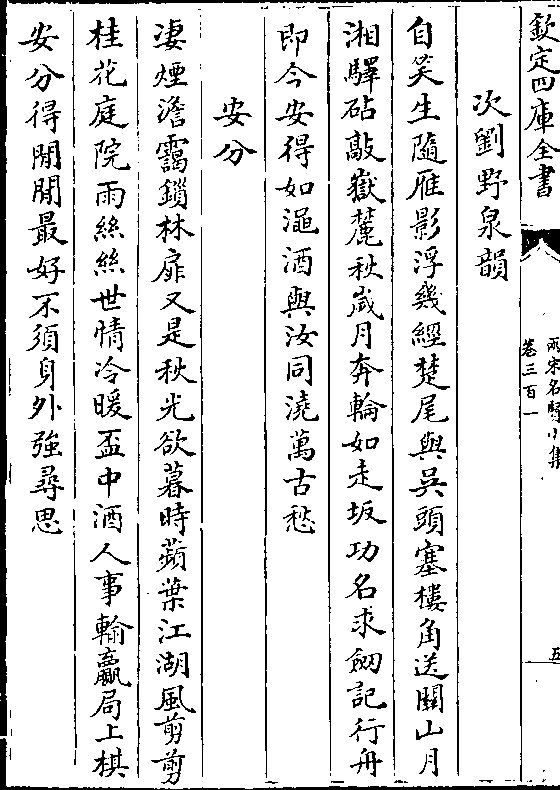 欽定四庫全書
兩宋名賢小集
卷三百一
五
次劉野泉韻
自笑生隨雁影浮幾經楚尾與吳頭塞樓角送關山月
湘驛砧敲嶽麓秋歲月奔輪如走坂功名求劒記行舟
即今安得如澠酒與汝同澆萬古愁
安分
凄煙澹靄鎖林扉又是秋光欲暮時蘋葉江湖風剪剪
桂花庭院雨絲絲世情冷暖盃中酒人事輸贏局上棋
安分得閒閒最好不須身外強尋思